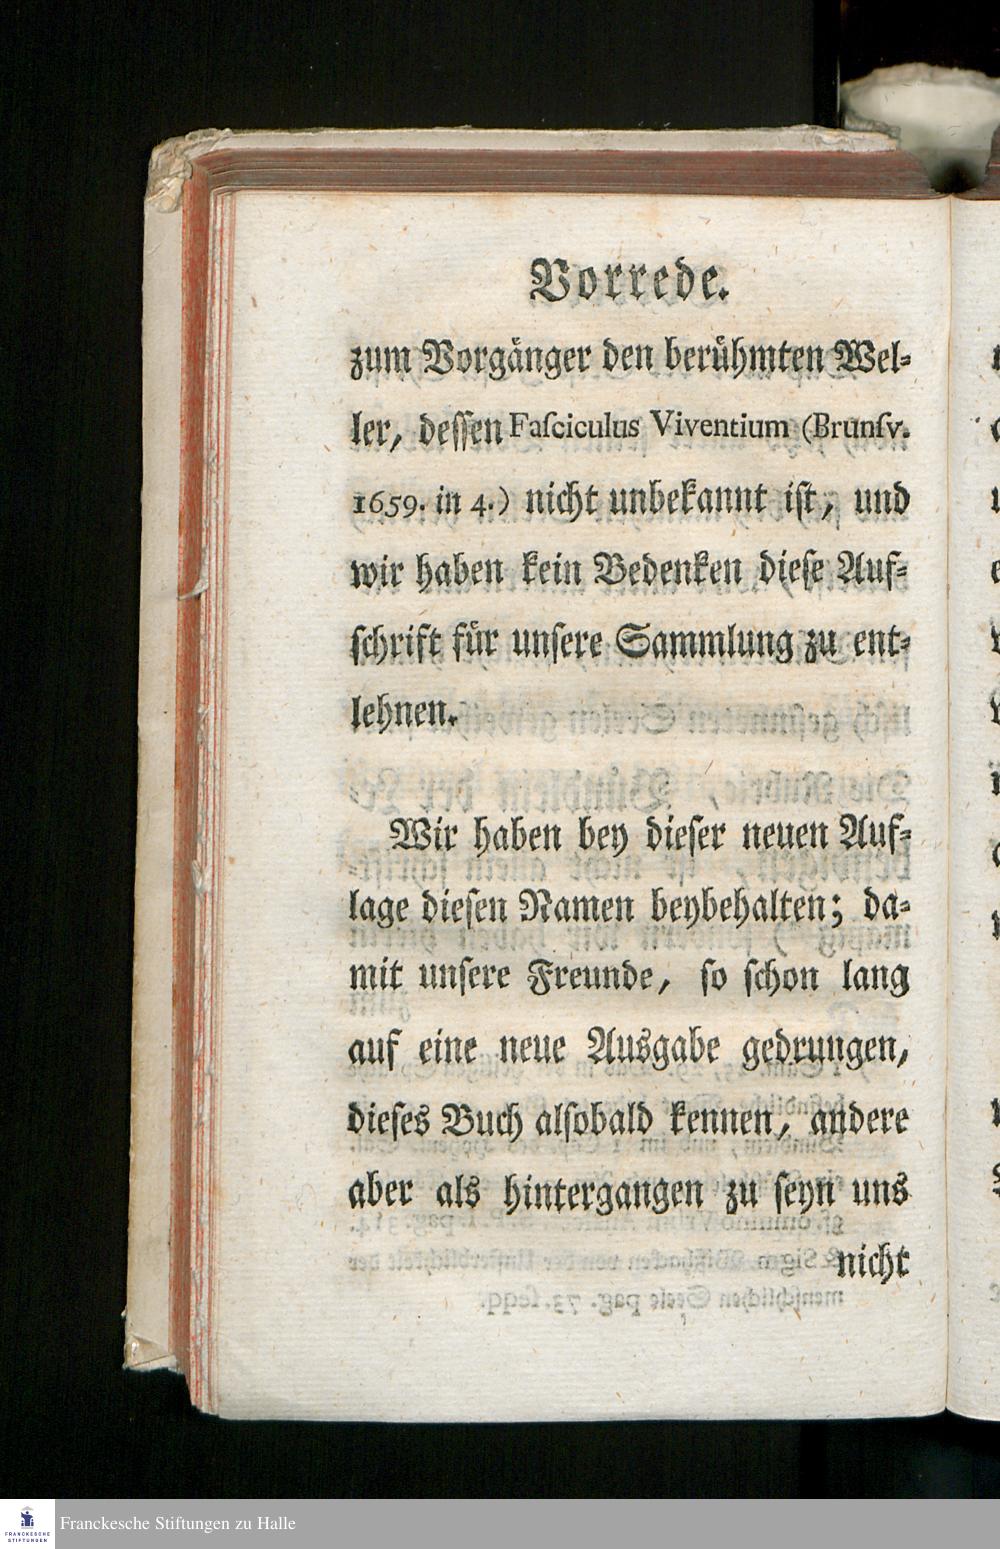 Vorrede.
zum Vorgänger den berühmten Wel-
ler, dessen Fasciculus Viventium (Brunsv.
1659. in 4.) nicht unbekannt ist, und
wir haben kein Bedenken diese Auf-
schrift für unsere Sammlung zu ent-
lehnen.
Wir haben bey dieser neuen Auf-
lage diesen Namen beybehalten; da-
mit unsere Freunde, so schon lang
auf eine neue Ausgabe gedrungen,
dieses Buch alsobald kennen, andere
aber als hintergangen zu seyn uns
nicht
Franckesche Stiftungen zu Halle
FRANCKESCHE
STIFTUNGEN